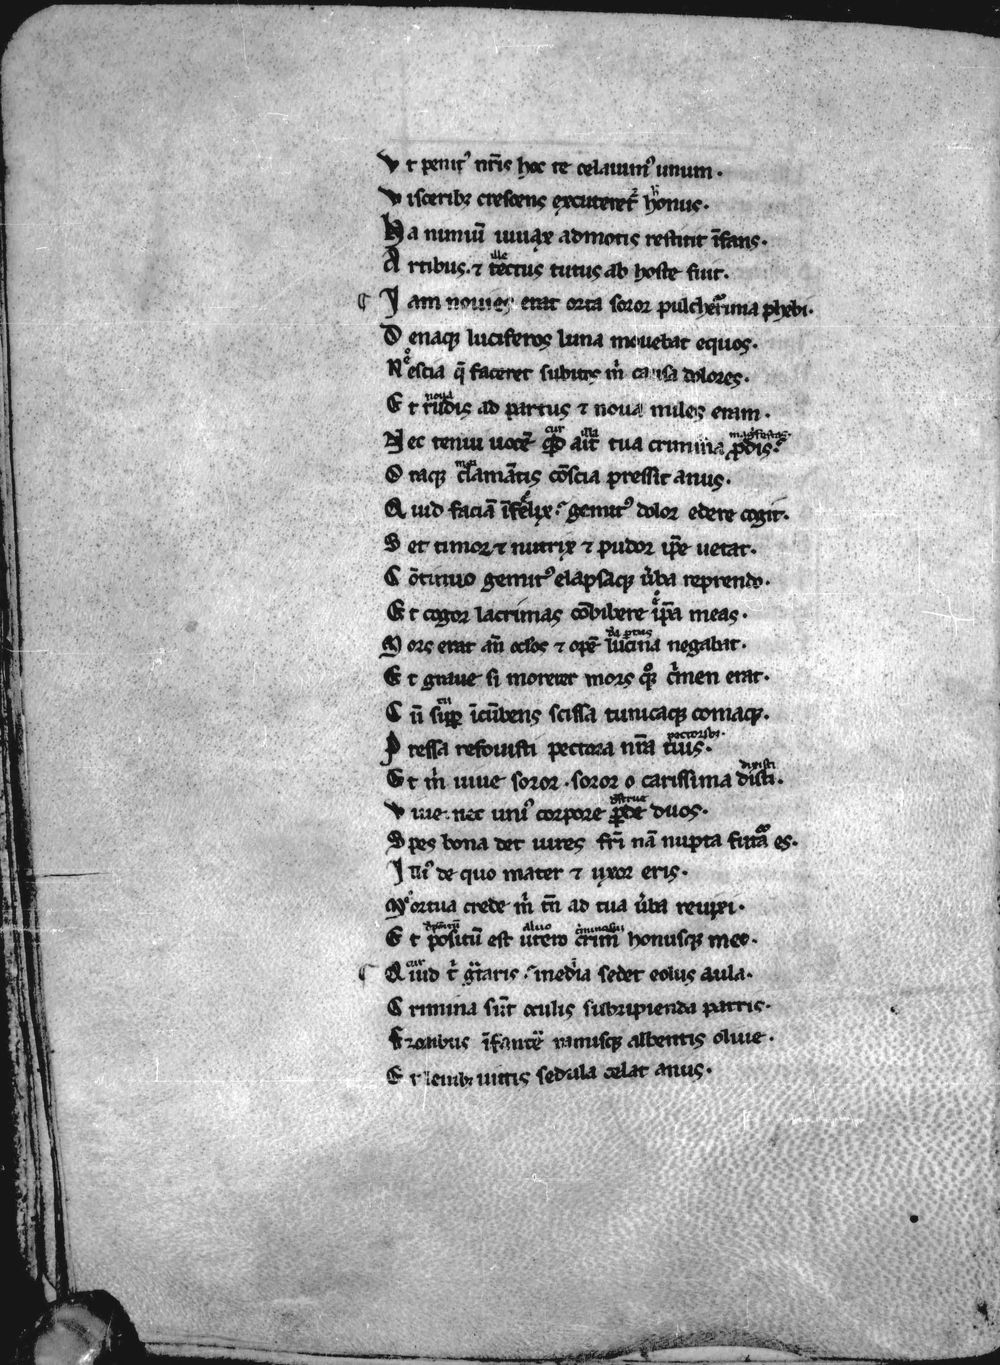 Ut penit᾽ nr̄is hoc te celauim᾽ unum.
Visceribꝫ crescens excuteret᷑ honus.
Ha nimiū uiuax admotis restitit īfans.
Artibus. ⁊ tectus tutus ab hoste fuit.
Iam nouies erat orta soror pulcherrima phebi.
Denaqꝫ luciferos luna mouebat equos.
Nescia q̄ faceret subitos m̄ causa dolores.
Et rudis ad partus ⁊ noua miles eram.
Nec tenui uocē quid ait tua crimina ꝓdis.
Otaqꝫ clamātis cōscia pressit anus.
Quid faciā īfelix. gemit᾽ dolor edere cogit.
Set timor ⁊ nutrix ⁊ pudor ip̄e uetat.
Cōtinuo gemit᾽ elapsaqꝫ ūba reprendo.
Et cogor lacrimas cōbibere ip̄a meas.
Mors erat an̄ oclos ⁊ opē lucina negabat.
Et graue si morerer mors qꝫ c̄men erat.
Cū suꝑ īcūbens scissa tunicaqꝫ comaqꝫ.
Pressa refouisti pectora nr̄a tuis.
Et m̄ uiue soror. soror o carissima disti.
Viue. nec uni᾽ corpore ꝓde duos.
Spes bona det uires fr̄i nā nupta futura es.
Illi᾽ de quo mater ⁊ uxor eris.
Mortua crede m̄ tn̄ ad tua ūba reuixi.
Et positū est utero crim̄ honusqꝫ meo.
Quid t̄ grataris. media sedet eolus aula.
Crimina sūt oculis subripienda patris.
Frondibus īfantē ramisqꝫ albentis oliue.
Et leuibꝫ uittis sedula celat anus.